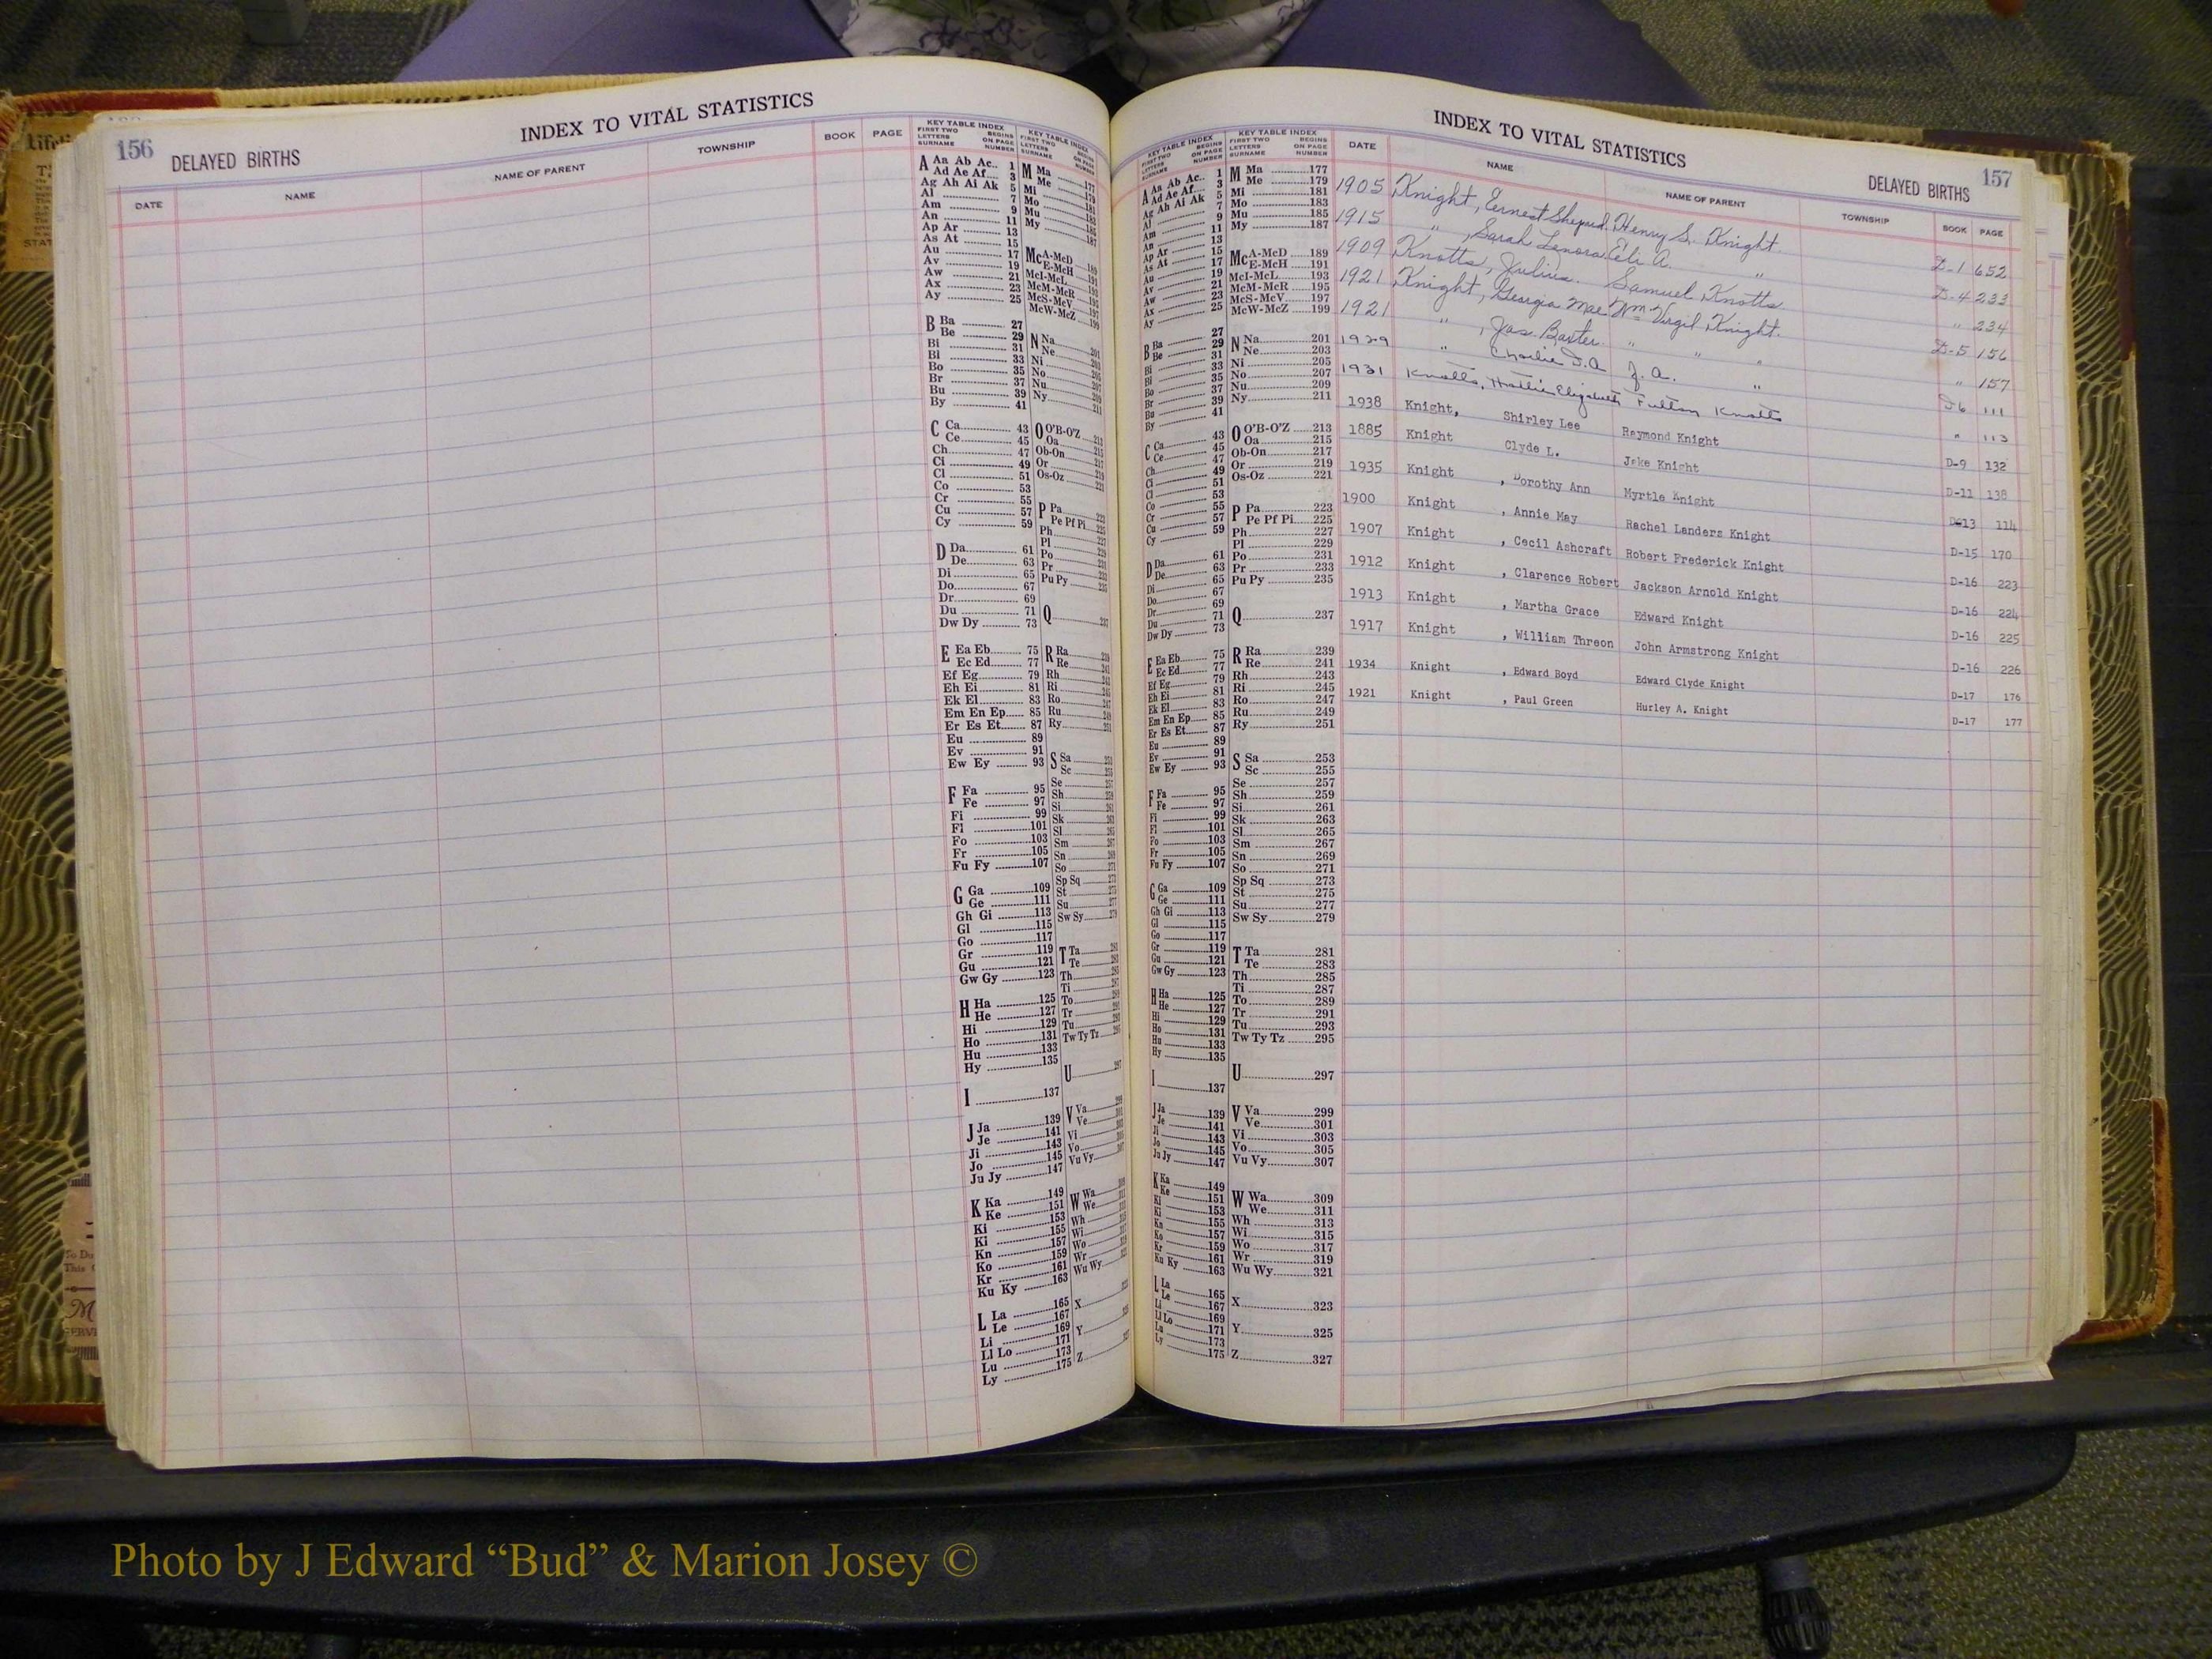 156
INDEX TO VITAL STATISTICS
DELAYED BIRTHS
DATE NAME NAME OF PARENT TOWNSHIP BOOK PAGE
KEY TABLE INDEX KEY TABLE INDEX
FIRST TWO LETTERS SURNAME BEGINS ON PAGE NUMBER
A Aa Ab Ac.. 1
Ad Ae Af 3
Ag Ah Ai Ak 5
Al 7
Am 9
An 11
Ap Ar 13
As At 15
Au 17
Av 19
Aw 21
Ax 23
Ay 25
B Ba 27
Be 29
Bi 31
Bl 33
Bo 35
Br 37
Bu 39
By 41
C Ca 43
Ce 45
Ch 47
Ci 49
Cl 51
Co 53
Cr 55
Cu 57
Cy 59
D Da 61
De 63
Di 65
Do 67
Dr 69
Du 71
Dw Dy 73
E Ea Eb 75
Ec Ed 77
Ef Eg 79
Eh Ei 81
Ek El 83
Em En Ep 85
Er Es Et 87
Eu 89
Ev 91
Ew Ey 93
F Fa 95
Fe 97
Fi 99
Fl 101
Fo 103
Fr 105
Fu Fy 107
G Ga 109
Ge 111
Gh Gi 113
Gl 115
Go 117
Gr 119
Gu 121
Gw Gy 123
H Ha 125
He 127
Hi 129
Ho 131
Hu 133
Hy 135
I 137
J Ja 139
Je 141
Ji 143
Jo 145
Ju Jy 147
K Ka 149
Ke 151
Ki 153
Ki 155
Kn 157
Ko 159
Kr 161
Ku Ky 163
L La 165
Le 167
Li 169
Ll Lo 171
Lu 173
Ly 175
INDEX TO VITAL STATISTICS
DELAYED BIRTHS 157
KEY TABLE INDEX KEY TABLE INDEX
FIRST TWO LETTERS SURNAME BEGINS ON PAGE NUMBER
M Ma 177
Me 179
Mi 181
Mo 183
Mu 185
My 187
Mc A-McD 189
E-McH 191
McI-McL 193
McM-McR 195
McS-McV 197
McW-McZ 199
N Na 201
Ne 203
Ni 205
No 207
Nu 209
Ny 211
O O'B-O'Z 213
Oa 215
Ob-On 217
Or 219
Os-Oz 221
P Pa 223
Pe Pf Pi 225
Ph 227
Pl 229
Po 231
Pr 233
Pu Py 235
Q 237
R Ra 239
Re 241
Rh 243
Ri 245
Ro 247
Ru 249
Ry 251
S Sa 253
Sc 255
Se 257
Sh 259
Si 261
Sk 263
Sl 265
Sm 267
Sn 269
So 271
Sp Sq 273
St 275
Su 277
Sw Sy 279
T Ta 281
Te 283
Th 285
Ti 287
To 289
Tr 291
Tu 293
Tw Ty Tz 295
U 297
V Va 299
Ve 301
Vi 303
Vo 305
Vu Vy 307
W Wa 309
We 311
Wh 313
Wi 315
Wo 317
Wr 319
Wu Wy 321
X 323
Y 325
Z 327
DATE NAME NAME OF PARENT TOWNSHIP BOOK PAGE
1905 Knight, Ernest Henry S. Knight D-1 652
1915 " , Sarah Lenora Eli A. " D-4 233
1909 Knotts, Julius. Samuel Knotts " 234
1921 Knight, Georgia Mae Wm Virgil Knight. D-5 156
1921 " , Jas. Baxter. " " " " 157
1929 " Charlie J.A J. A. " D6 111
1931 Knotts, Hattie Elizabeth Fulton Knotts " 113
1938 Knight, Shirley Lee Raymond Knight D-9 132
1885 Knight Clyde L. Jake Knight D-11 138
1935 Knight , Dorothy Ann Myrtle Knight D-13 114
1900 Knight , Annie May Rachel Landers Knight D-15 170
1907 Knight , Cecil Ashcraft Robert Frederick Knight D-16 223
1912 Knight , Clarence Robert Jackson Arnold Knight D-16 224
1913 Knight , Martha Grace Edward Knight D-16 225
1917 Knight , William Threon John Armstrong Knight D-16 226
1934 Knight , Edward Boyd Edward Clyde Knight D-17 176
1921 Knight , Paul Green Hurley A. Knight D-17 177
Photo by J Edward “Bud” & Marion Josey ©